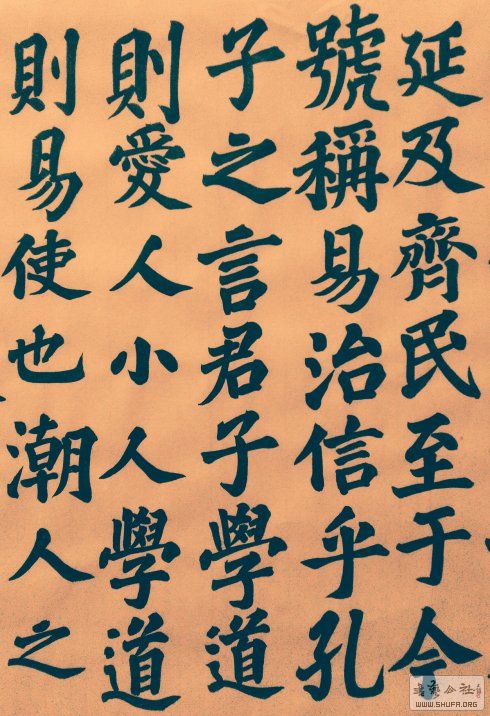 延及齊民至于今
號稱易治信乎孔
子之言君子學道
則愛人小人學道
則易使也潮人之
書法公社
WWW.SHUFA.ORG